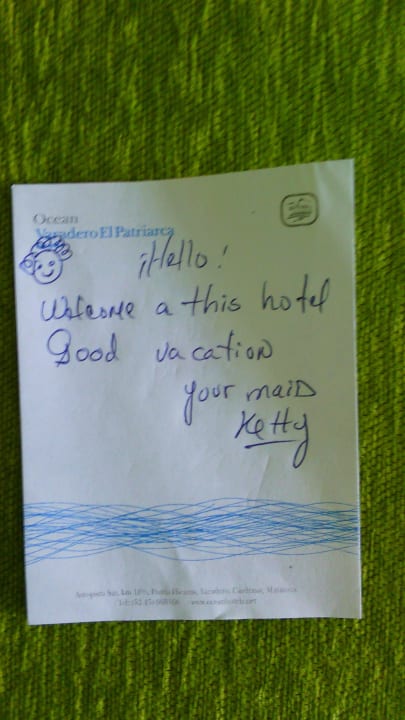 Ocean
Varadero El Patriarca
¡Hello!
Welcome a this hotel
Good vacation
your maid
Ketty
Autopista Sur, km 18½, Punta Hicacos, Varadero, Cárdenas, Matanzas
www.oceanhotels.net